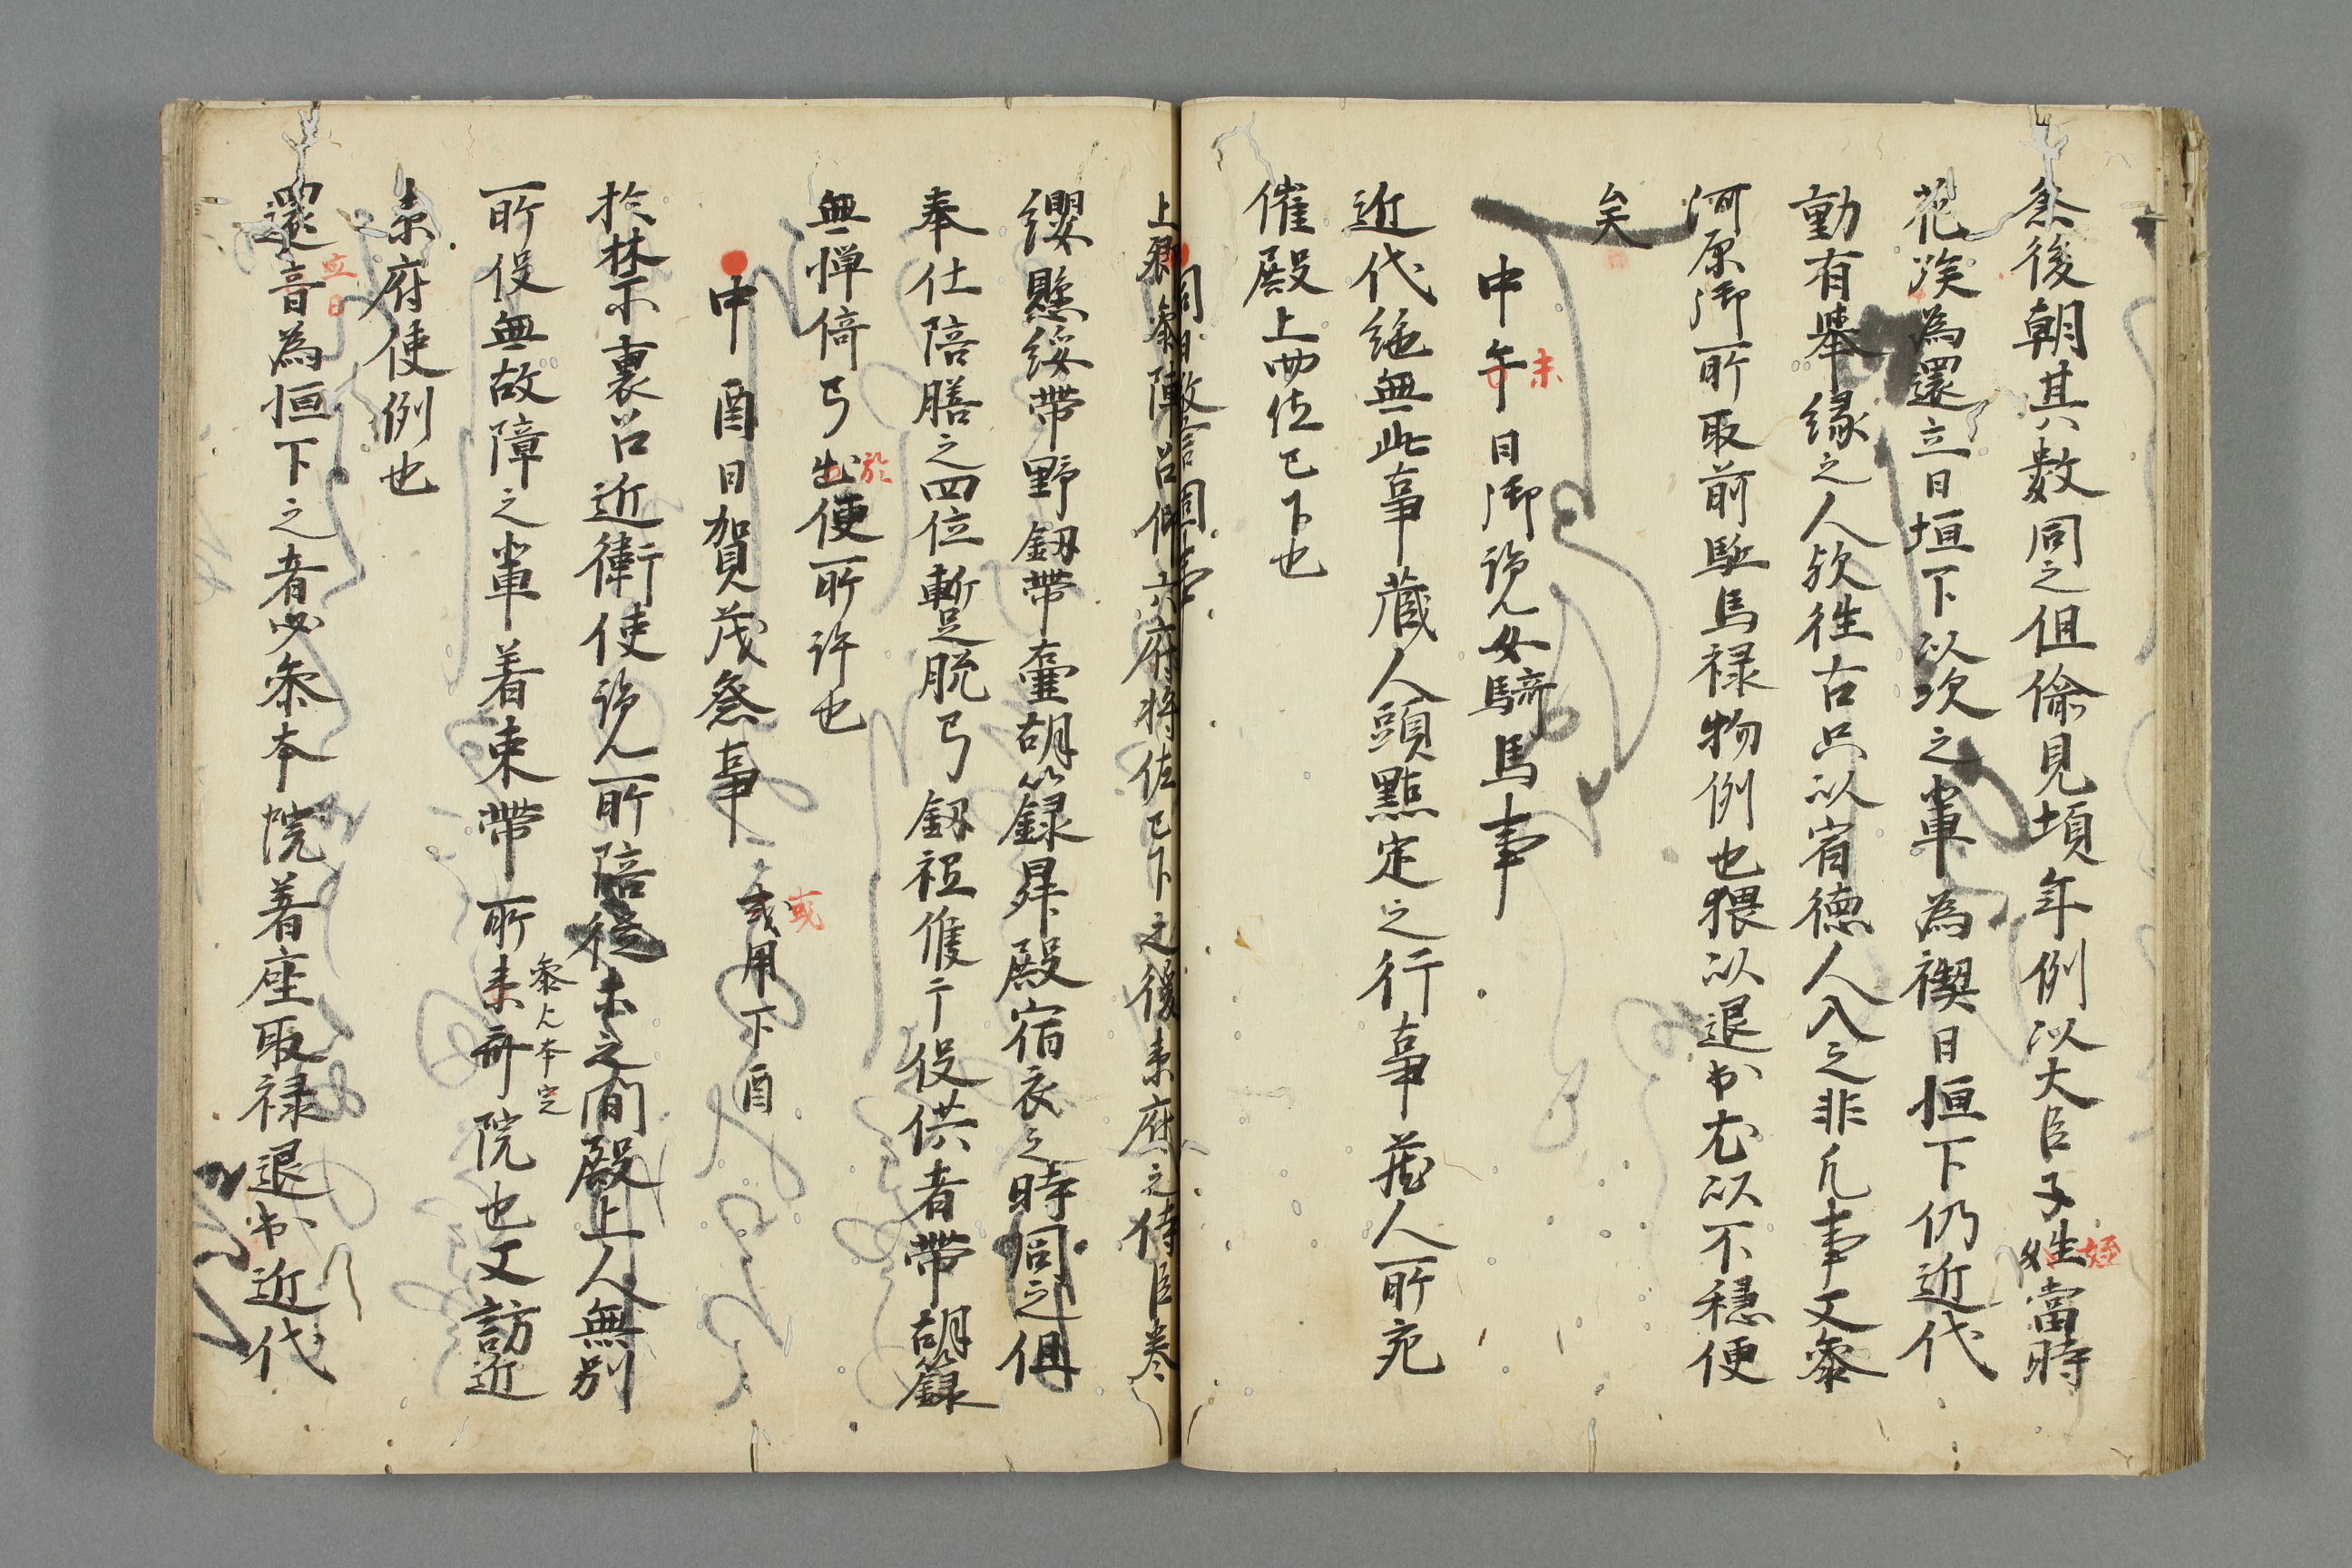 祭後朝其数同之但偸見頃年例以大臣子姓當時
姪
花族為還立日垣下以次之輩為禊日恒下仍近代
動有挙縁之人欤往古只以宿徳人入之非凡事又参
河原御所取前駈馬禄物例也猥以退出尤以不穏便
矣
中午日御覧女騎馬事
未
近代絶無此事蔵人頭點定之行事蔵人所宛
催殿上四位已下也
同日警固事
上卿参陣召仰六府将佐已下之後来府之侍臣巻
纓懸緌帯野釼帯壷胡籙昇殿宿衣之時同之但
奉仕陪膳之四位暫脱弓釼祗候于役供者帯胡籙
無憚倚弓出便所許也
於
中酉日賀茂祭事 或用下酉
或
於禁裏召近衛使覧所陪従等之間殿上人無別
所役無故障之輩着束帯所来斎院也又訪近
参人本定
来府使例也
還音為恒下之者必参本院着座取禄退出近代
立日